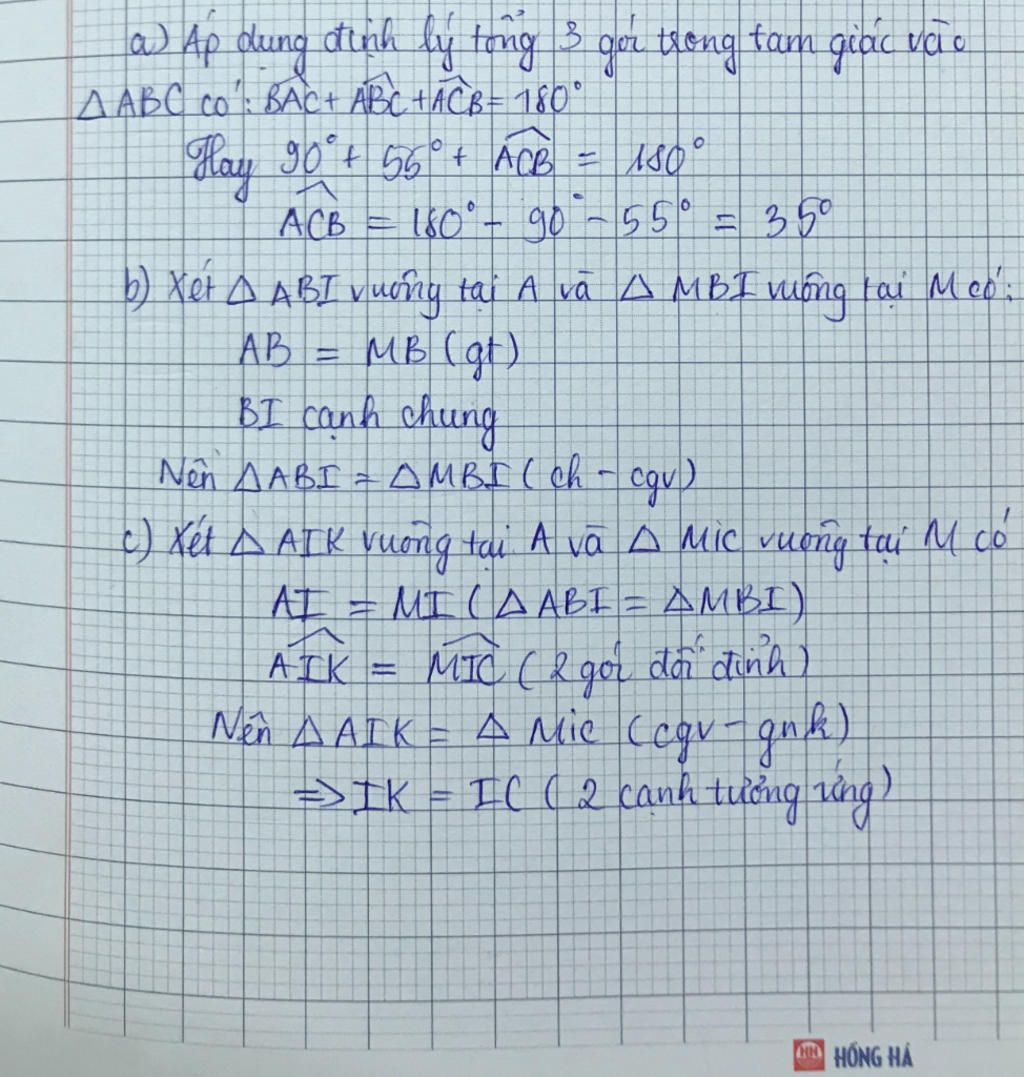 a) Áp dụng định lý tổng 3 gói trong tam giác vào
△ABC có: BAC + ABC + ACB = 180°
Hay 90° + 55° + ACB = 180°
ACB = 180° - 90° - 55° = 35°
b) Xét △ ABI vuông tại A và △ MBI vuông tại M có:
AB = MB (gt)
BI cạnh chung
Nên △ABI = △MBI (ch - cgv)
c) Xét △ AIK vuông tại A và △ Mic vuông tại M có
AI = MI (△ABI = △MBI)
AIK = MIC (2 gói đối đỉnh)
Nên △AIK = △ Mic (cgv - gnk)
=> IK = IC (2 cạnh tưởng ứng)
HỒNG HÀ